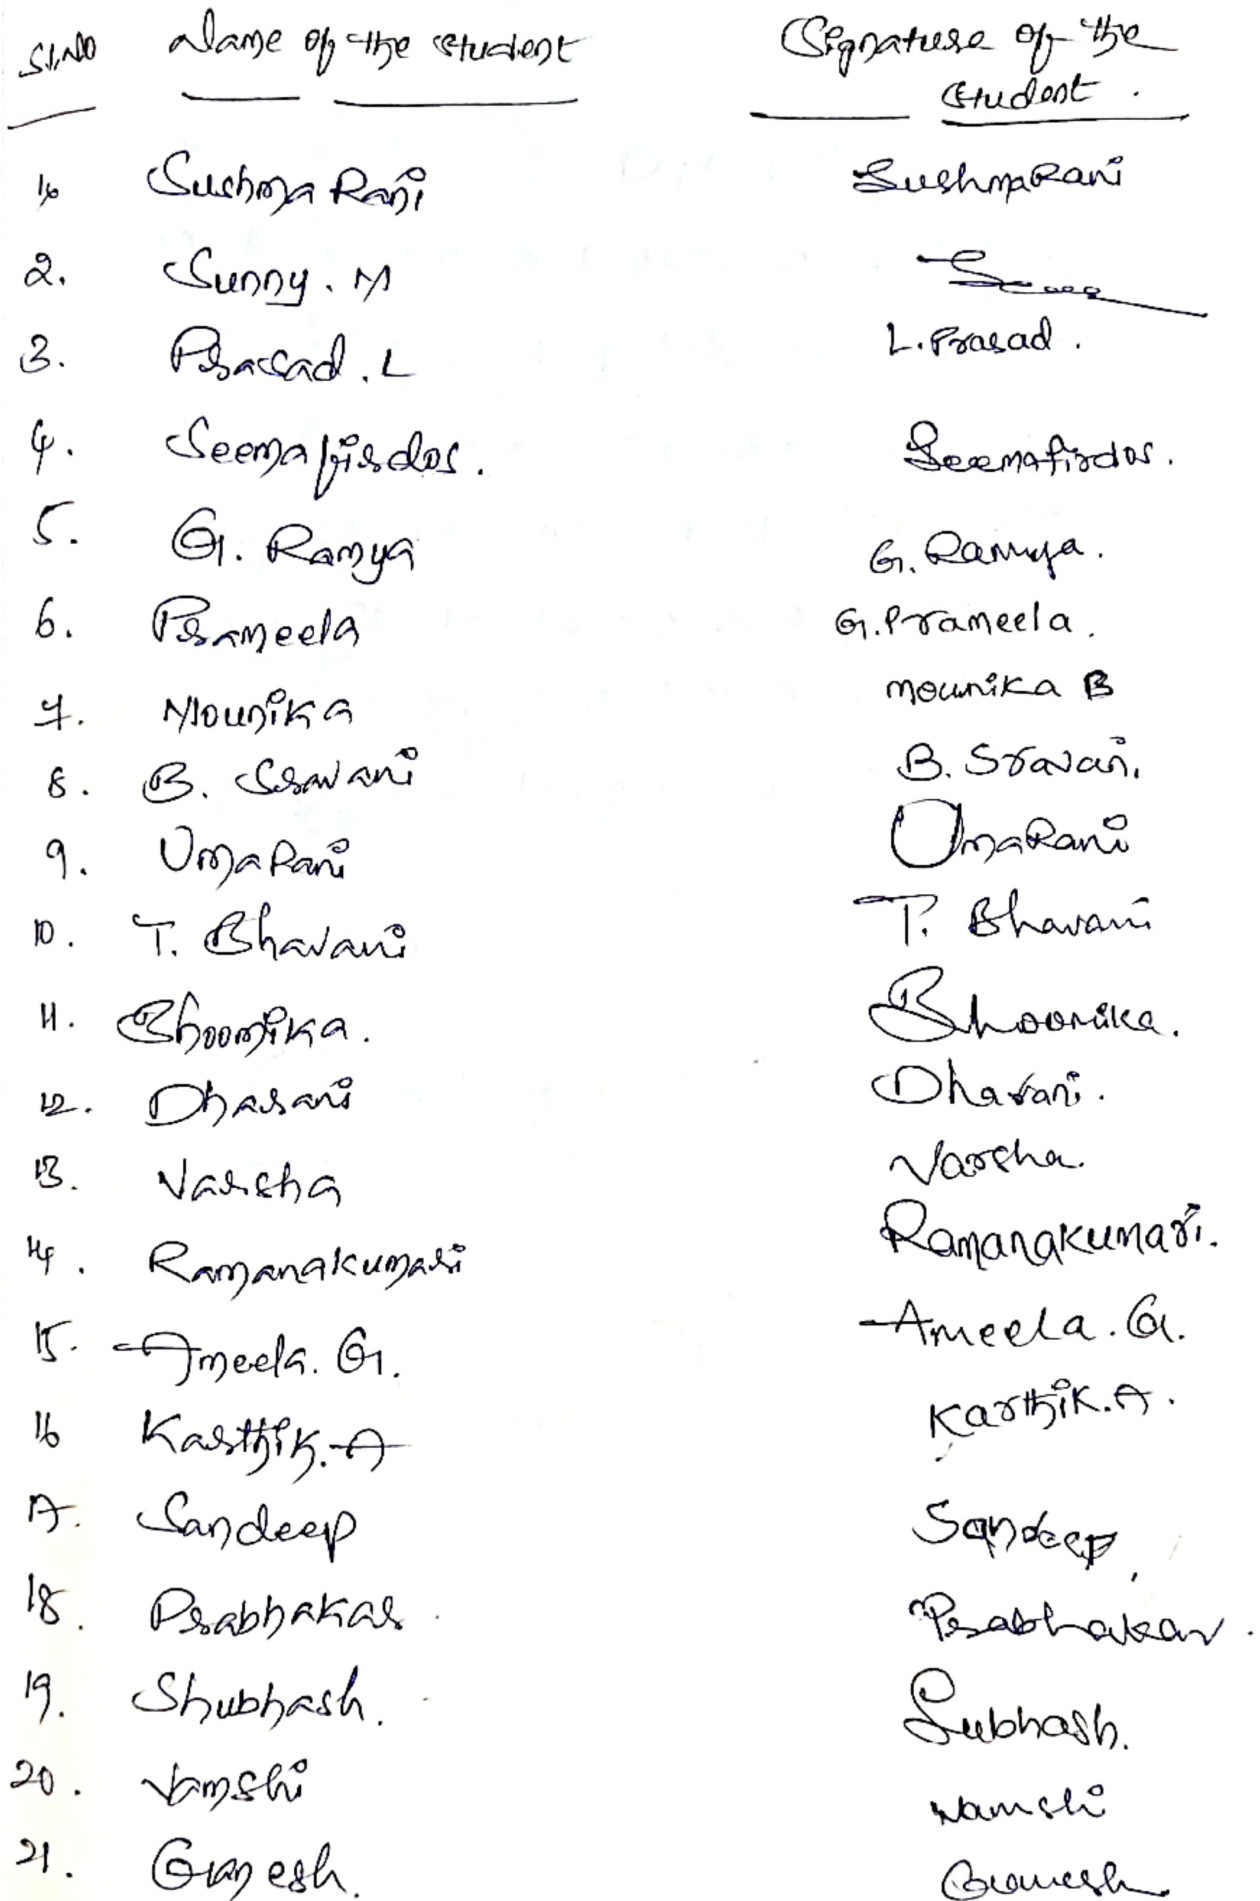 Sl.No Name of the student Signature of the
student.
1. Sushma Rani SushmaRani
2. Sunny. M
3. Prasad. L L. Prasad.
4. Seema firdos. Seemafirdos.
5. G. Ramya G. Ramya.
6. Prameela G. Prameela.
7. Mounika mounika B
8. B. Sravani B. Sravani
9. Uma Rani UmaRani
10. T. Bhavani T. Bhavani
11. Bhoomika. Bhoomika.
12. Dharani Dharani.
13. Varsha Varsha.
14. Ramanakumari Ramanakumari.
15. Ameela. G. Ameela. G.
16 Karthik. A Karthik. A.
17. Sandeep Sandeep
18. Prabhakar Prabhakar.
19. Shubhash. Subhash.
20. Vamshi Vamshi
21. Ganesh. Ganesh